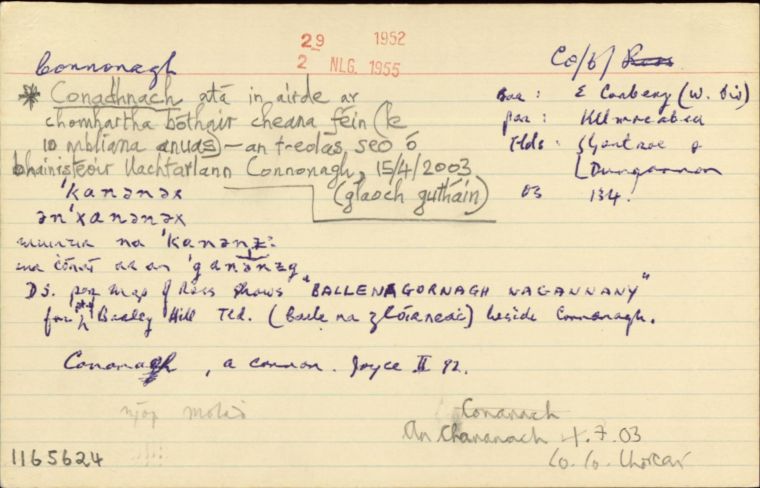 29 1952
2 NLG. 1955
Connonagh
Co/b/ Ross
* Conadhnach atá in airde ar
chomhartha bóthair cheana féin (le
10 mbliana anuas) — an t-eolas seo ó
bhainisteoir Uachtarlann Connonagh, 15/4/2003
(glaoch gutháin)
Bar: E Carbery (W. Div)
par: Kilmacabea
Tlds:
Dungannon
OS 134.
'kanənəx
ən'xanənəx
muintir na 'kanənɪ:
D.S. par map of Ross shows "BALLENAGORNAGH NAGANNANY"
for pt of Bealey Hill Tld. (baile na gCóirneac) beside Connonagh.
Cononagh, a connon. Joyce II 92.
níor molad
Conanach
An Chananach 4.7.03
Co. Co. Chorcaí
1165624